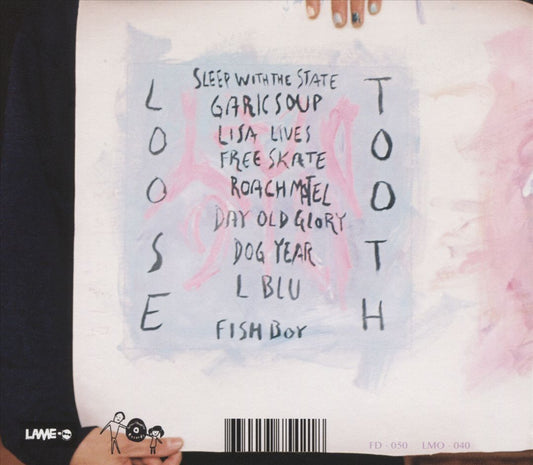 SLEEP WITH THE STATE
GARLIC SOUP
LISA LIVES
FREE SKATE
ROACH MOTEL
DAY OLD GLORY
DOG YEAR
L BLU
FISH BOY
LOOSE
TOOTH
LAME-O
FD - 050 LMO - 040